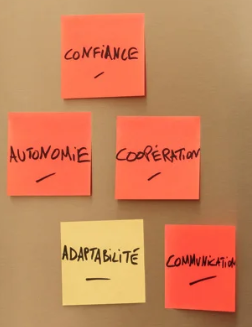 CONFIANCE
AUTONOMIE
COOPÉRATION
ADAPTABILITÉ
COMMUNICATION